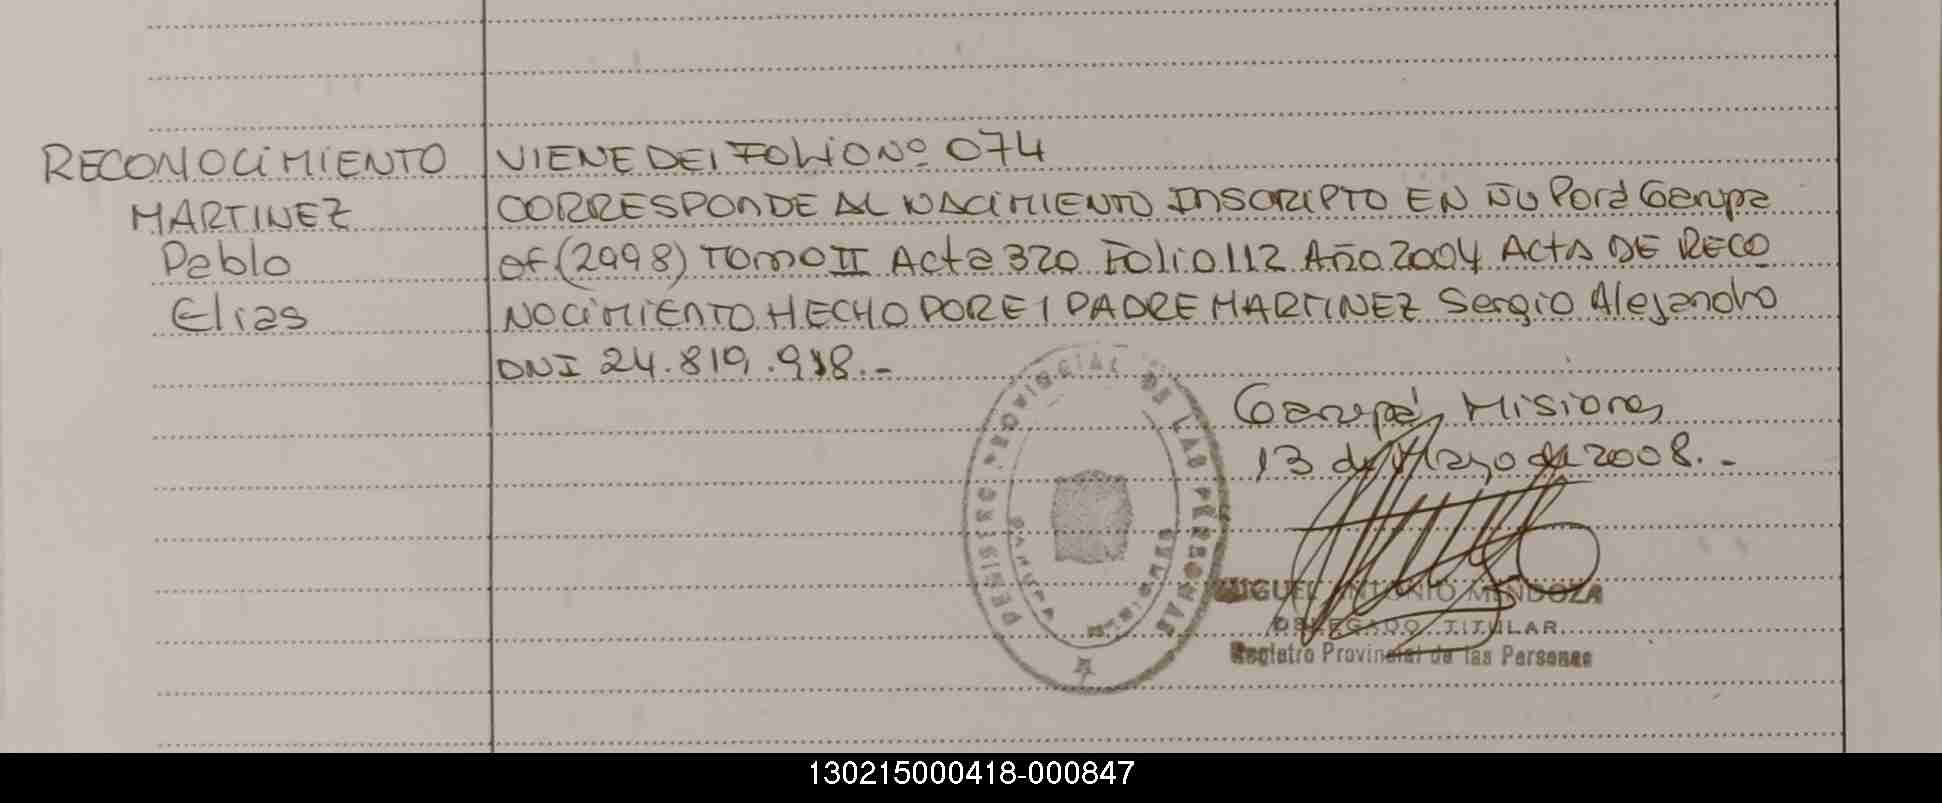 RECONOCIMIENTO
MARTINEZ
Pablo
Elias
VIENE DEL FOLIO Nº 074
CORRESPONDE AL NACIMIENTO INSCRIPTO EN Garupa
of (2998) TOMO II Acta 320 Folio 112 Año 2004 ACTA DE RECO
NOCIMIENTO HECHO POR El PADRE MARTINEZ Sergio Alejandro
DNI 24.819.918.-
Garupá, Misiones
13 de Marzo de 2008.-
REGISTRO PROVINCIAL DE LAS PERSONAS
GARUPA
MISIONES
MIGUEL ANTONIO MENDOZA
DELEGADO TITULAR
Registro Provincial de las Personas
130215000418-000847